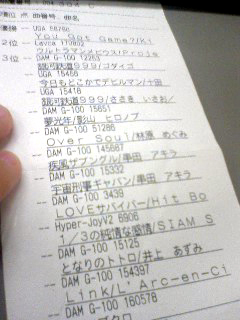 順位 点 曲番号、曲名
優勝 -- UGA 58760
You Got Game?/Ki
２位 -- Lavca 170802
ウルトラマンメビウス/Proje
３位 -- DAM G-100 12253
銀河鉄道999/ゴダイゴ
-- UGA 15456
今日もどこかでデビルマン/十田
-- UGA 15418
銀河鉄道999/ささき いさお/
-- DAM G-100 15651
夢光年/影山 ヒロノブ
-- DAM G-100 51286
Over Soul/林原 めぐみ
-- DAM G-100 145687
疾風ザブングル/串田 アキラ
-- DAM G-100 15332
宇宙刑事ギャバン/串田 アキラ
-- DAM G-100 3439
LOVEサバイバー/Hit Bo
-- Hyper-JoyV2 6906
1/3の純情な感情/SIAM S
-- DAM G-100 15125
となりのトトロ/井上 あずみ
-- DAM G-100 154397
Link/L'Arc-en-Ci
-- DAM G-100 160578